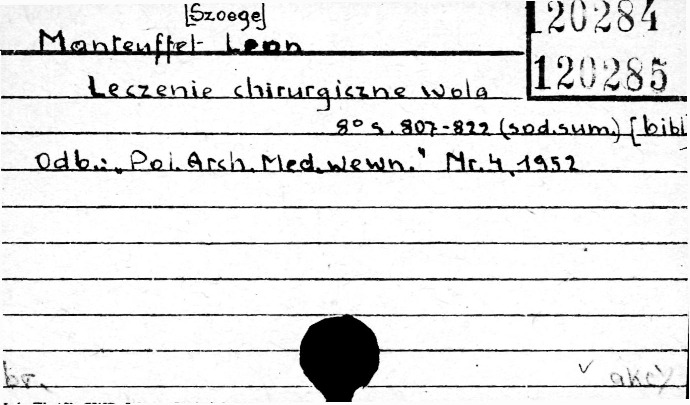 [Szoege]
120284
Manteuffel Leon
120285
Leczenie chirurgiczne wola
8° s. 807-822 (sod.sum.) [bibl
Odb.: „Pol. Arch. Med. wewn." Nr. 4, 1952
br.
akcy